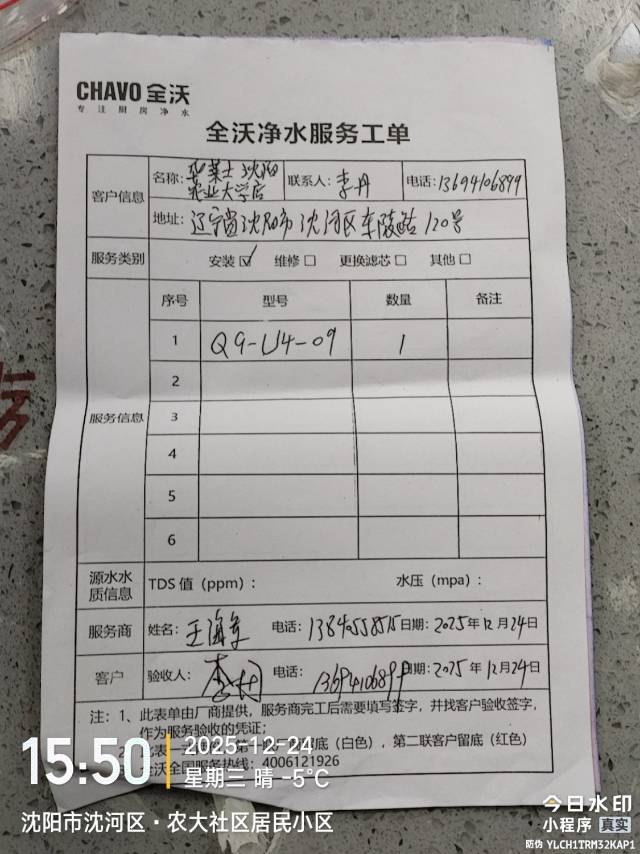 CHAVO 全沃
专注厨房净水
全沃净水服务工单
客户信息
名称: 华莱士沈阳农业大学店
联系人: 李丹
电话: 13694106899
地址: 辽宁省沈阳市沈河区东陵路120号
服务类别
安装☑ 维修□ 更换滤芯□ 其他□
服务信息
序号 型号 数量 备注
1 Q9-U4-09 1
2
3
4
5
6
源水水质信息
TDS 值（ppm）: 水压（mpa）:
服务商 姓名: 王海军 电话: 13840558515 日期: 2025年12月24日
客户 验收人: 李丹 电话: 13694106899 日期: 2025年12月24日
注：1、此表单由厂商提供，服务商完工后需要填写签字，并找客户验收签字，
作为服务验收的凭证；
底（白色），第二联客户留底（红色）
沃全国服务热线：4006121926
15:50
2025-12-24
星期三 晴 -5℃
沈阳市沈河区·农大社区居民小区
今日水印
小程序 真实
防伪 YLCH1TRM32KAP1